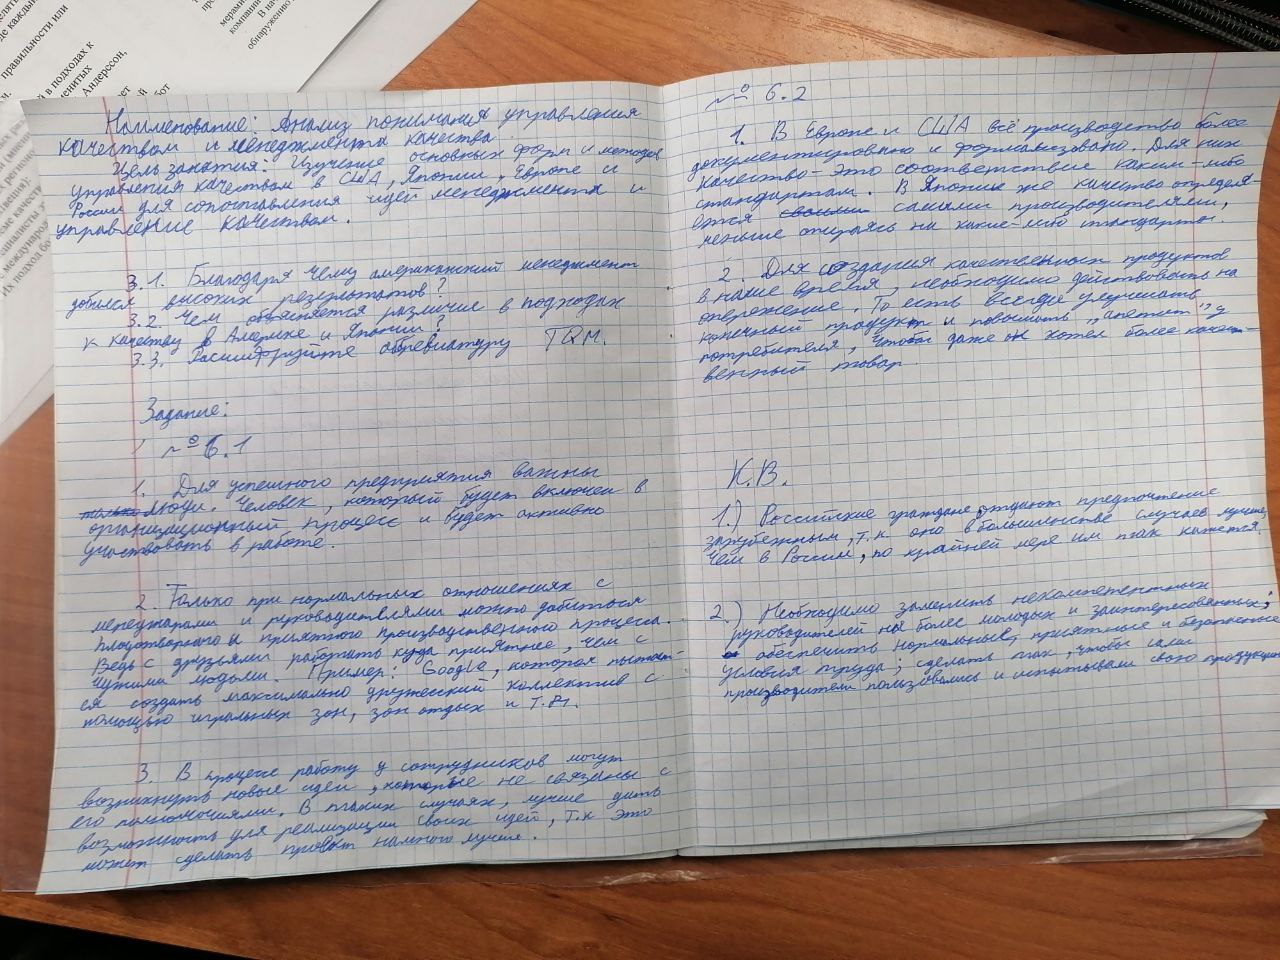 делять
де каждый
правильности
или
и.
й в подходах к
менитых
Андерссон,
мерами
компании
В нач
обнаружению
Наименование: Анализ понимания управления
качеством и менеджмента качества
Цель занятия: Изучение основных форм и методов
управления качеством в США, Японии, Европе и
России для сопоставления идей менеджмента и
управление качеством.
3.1. Благодаря чему американский менеджмент
добился высоких результатов?
3.2. Чем объясняется различие в подходах
к качеству в Америке и Японии?
3.3. Расшифруйте аббревиатуру TQM.
Задание:
№ 6.1
1. Для успешного предприятия важны
люди. Человек, который будет включен в
организационный процесс и будет активно
участвовать в работе.
2. Только при нормальных отношениях с
менеджерами и руководителями можно добиться
плодотворного и приятного производственного процесса.
Ведь с друзьями работать куда приятнее, чем с
чужими людьми. Пример: Google, которая пытает-
ся создать максимально дружеский коллектив с
помощью игральных зон, зон отдых и т.д.
3. В процессе работу у сотрудников могут
возникнуть новые идеи, которые не связаны с
его полномочиями. В таких случаях, лучше дать
возможность для реализации своих идей, т.к это
может сделать продукт намного лучше.
№ 6.2
1. В Европе и США всё производство более
документировано и формализовано. Для них
качество - это соответствие каким-либо
стандартам. В Японии же качество определя-
ется самими производителями,
меньше опираясь на какие-либо стандарты.
2. Для создания качественных продуктов
в наше время, необходимо действовать на
опережение. То есть всегда улучшать
конечный продукт и повышать „аппетит" у
потребителя, чтобы даже он хотел более качест-
венный товар.
К.В.
1.) Российские граждане отдают предпочтение
зарубежным, т.к оно в большинстве случаев лучше,
чем в России, по крайней мере им так кажется.
2.) Необходимо заменить некомпетентных
руководителей на более молодых и заинтересованных;
обеспечить нормальные, приятные и безопасные
условия труда; сделать так, чтобы сами
производители пользовались и испытывали свою продукцию